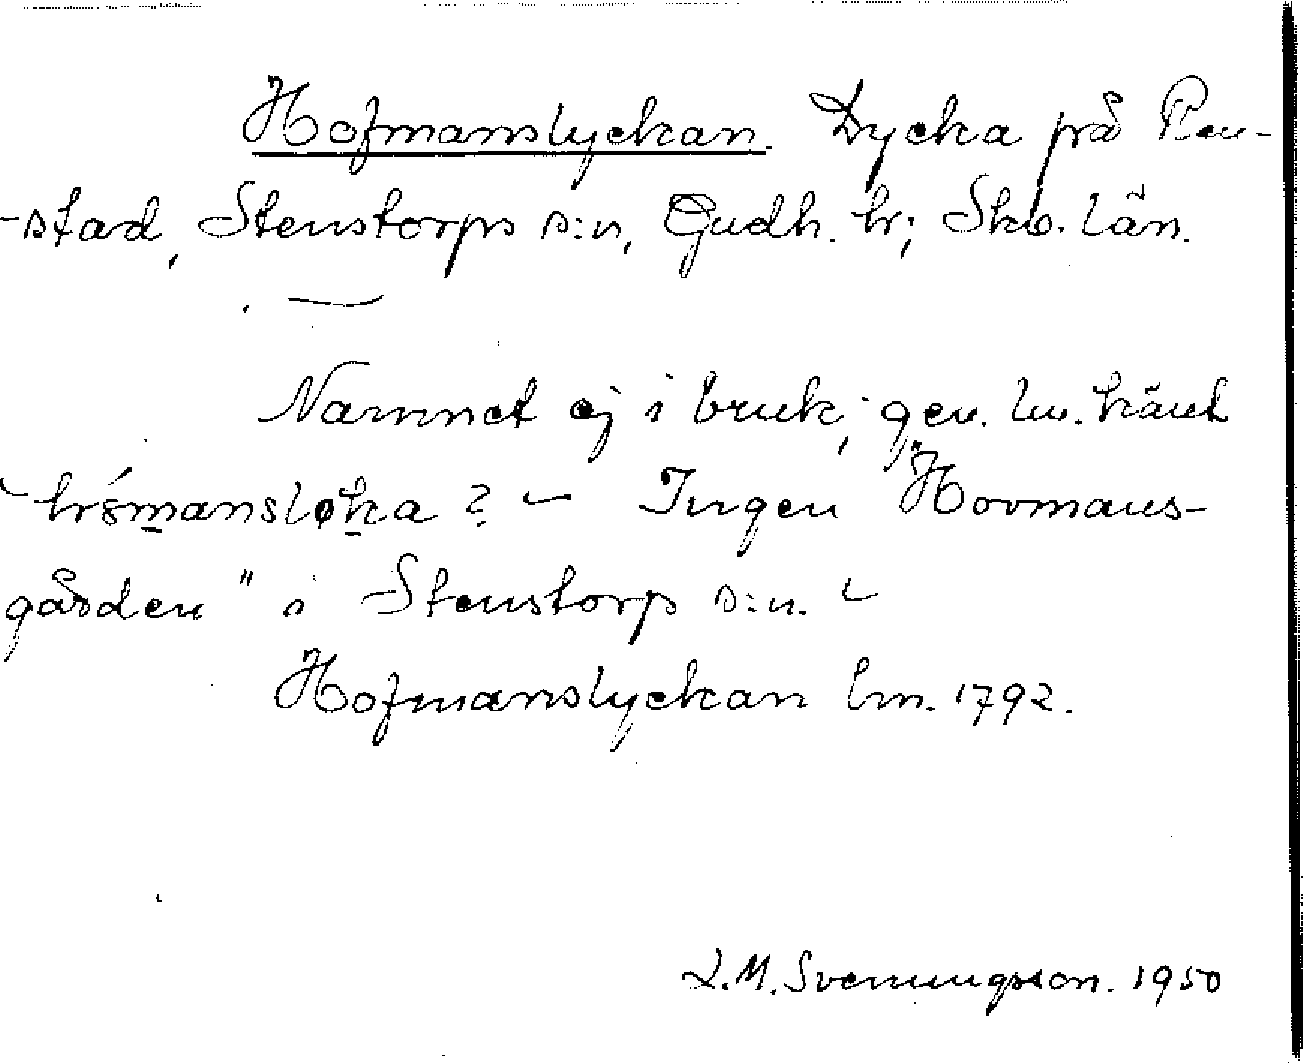 Hofmanslyckan. Lycka på Ren-
-stad, Stenstorps s:n, Gudh. hr; Skbg. län.
Namnet ej i bruk; gen. lm. känt
Ingen "Hovmans-
gården" i Stenstorp s:n. -
Hofmanslyckan lm. 1792.
L.M. Svenungsson. 1950